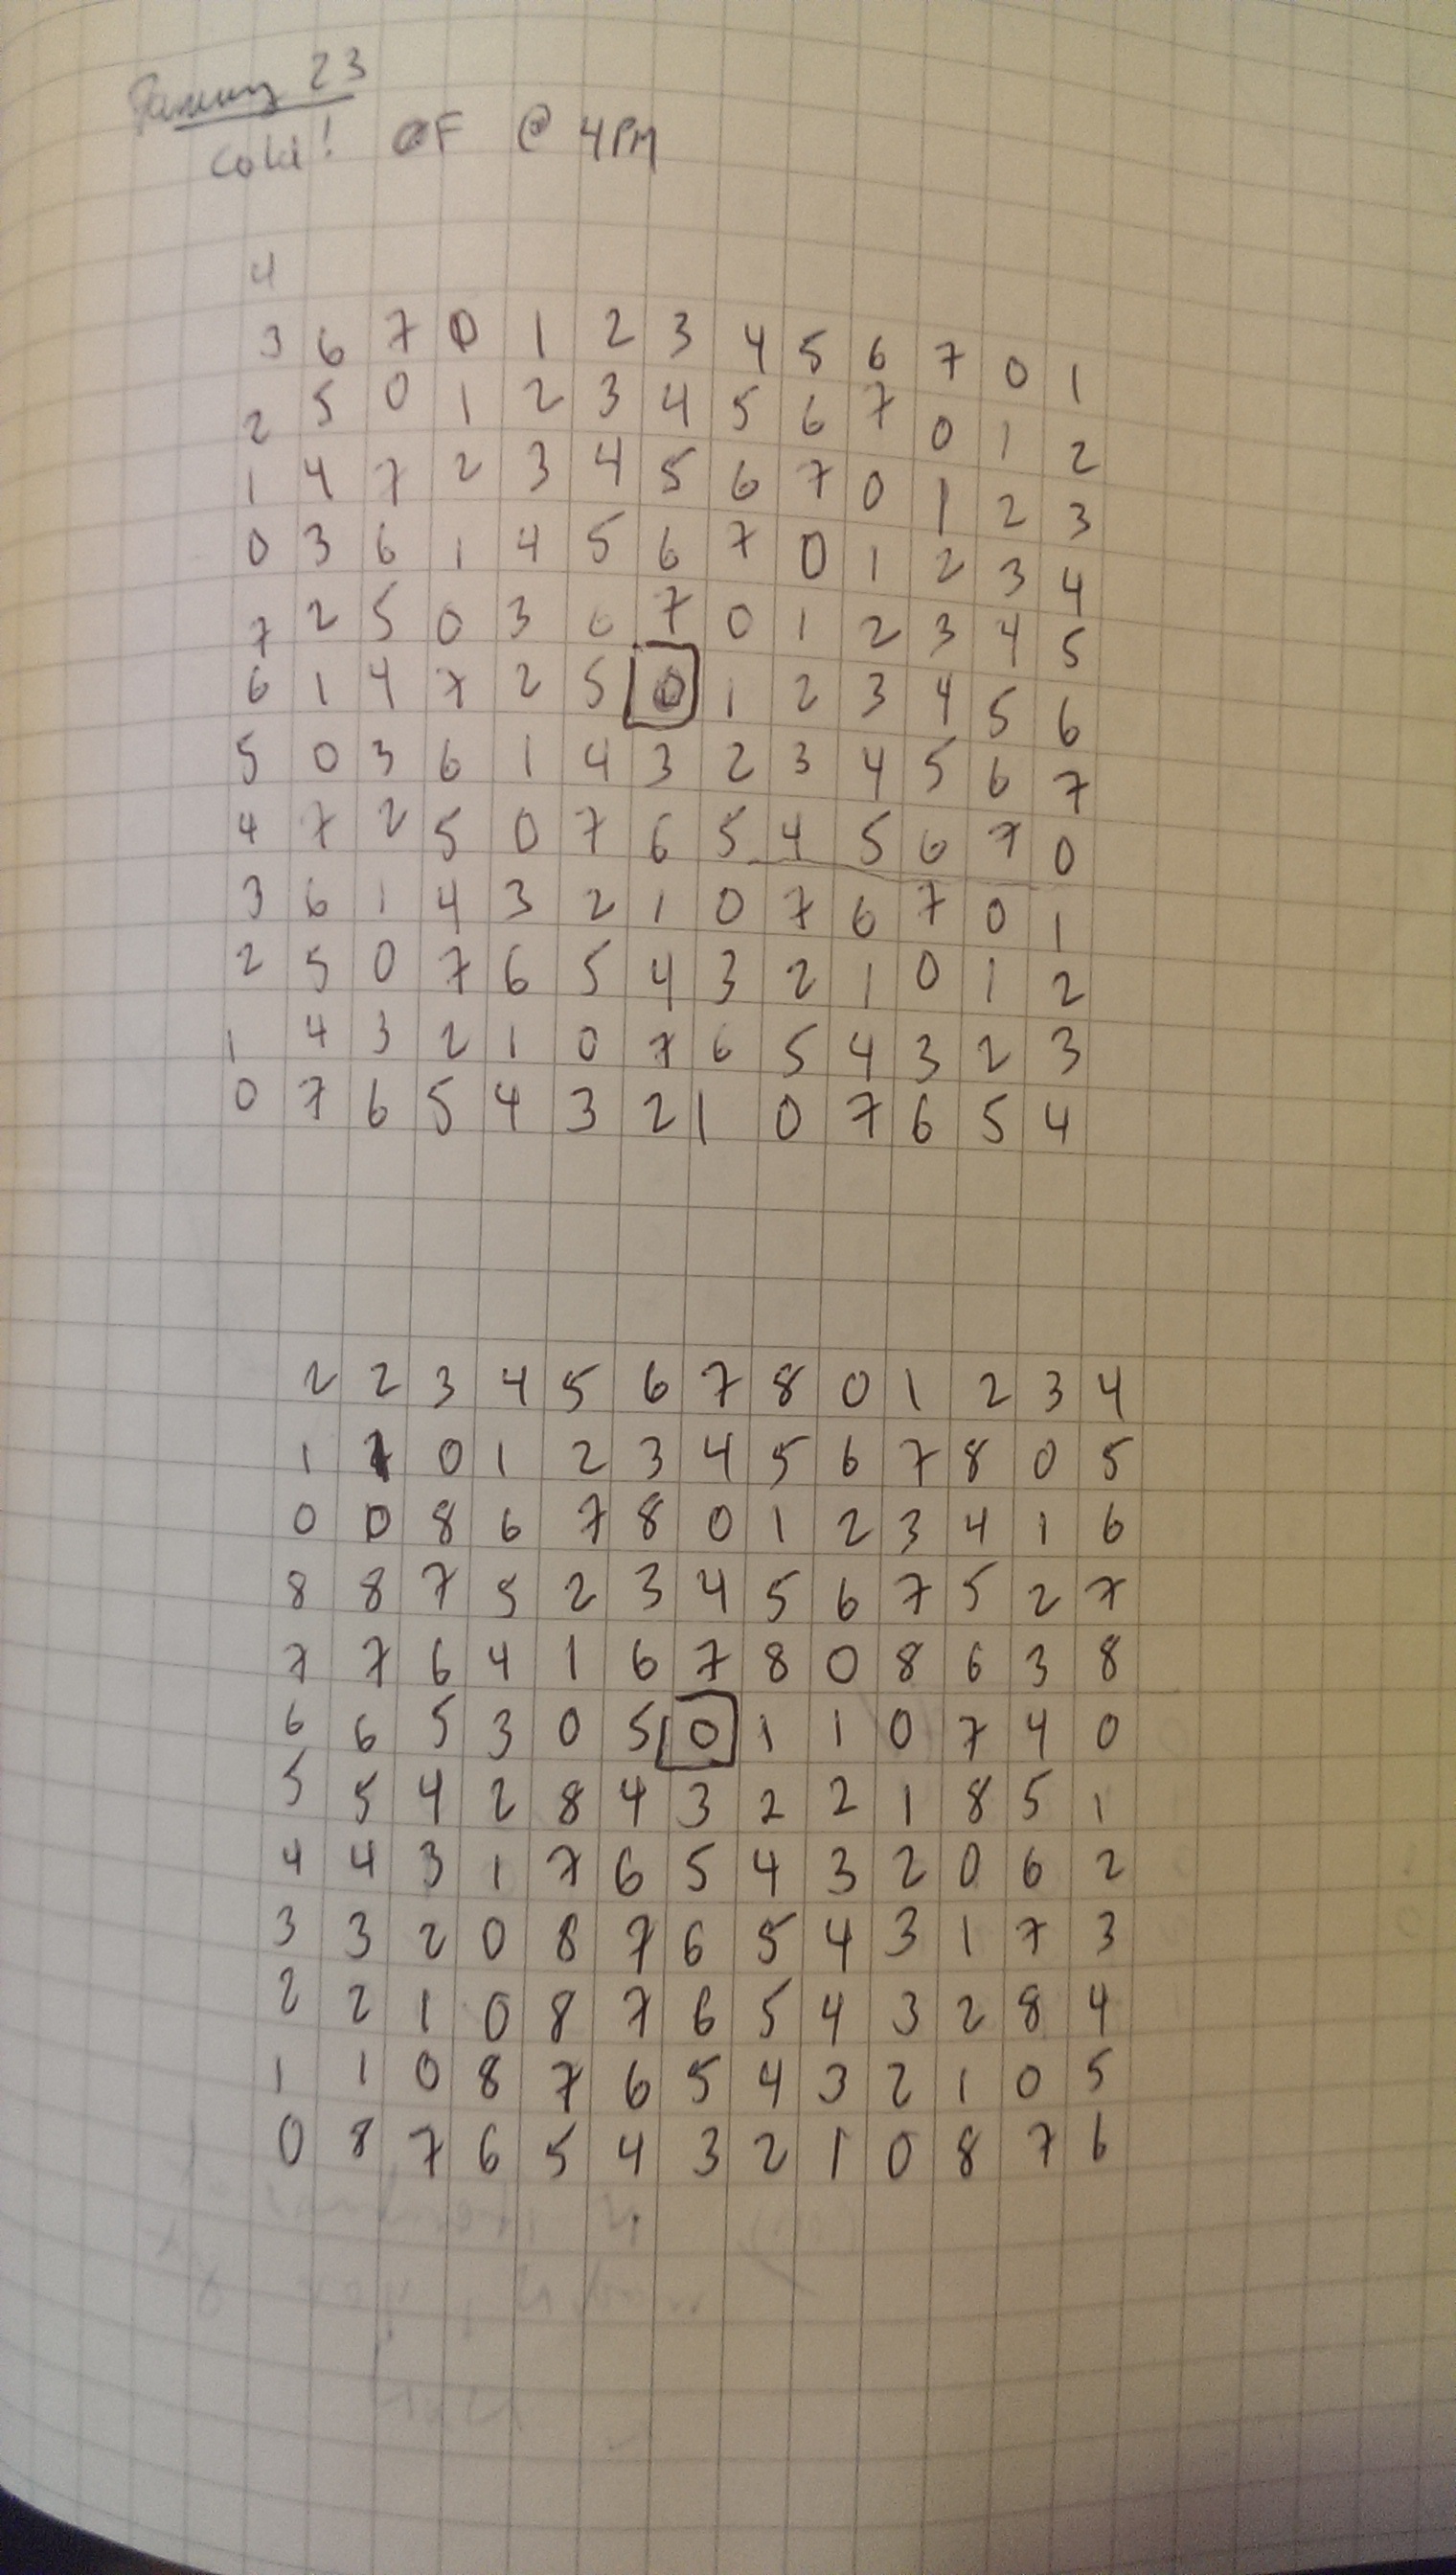 January 23
Cold! 0F @ 4PM
4
3 6 7 0 1 2 3 4 5 6 7 0 1
2 5 0 1 2 3 4 5 6 7 0 1 2
1 4 7 2 3 4 5 6 7 0 1 2 3
0 3 6 1 4 5 6 7 0 1 2 3 4
7 2 5 0 3 6 7 0 1 2 3 4 5
6 1 4 7 2 5 0 1 2 3 4 5 6
5 0 3 6 1 4 3 2 3 4 5 6 7
4 7 2 5 0 7 6 5 4 5 6 7 0
3 6 1 4 3 2 1 0 7 6 7 0 1
2 5 0 7 6 5 4 3 2 1 0 1 2
1 4 3 2 1 0 7 6 5 4 3 2 3
0 7 6 5 4 3 2 1 0 7 6 5 4
2 2 3 4 5 6 7 8 0 1 2 3 4
1 1 0 1 2 3 4 5 6 7 8 0 5
0 0 8 6 7 8 0 1 2 3 4 1 6
8 8 7 5 2 3 4 5 6 7 5 2 7
7 7 6 4 1 6 7 8 0 8 6 3 8
6 6 5 3 0 5 0 1 1 0 7 4 0
5 5 4 2 8 4 3 2 2 1 8 5 1
4 4 3 1 7 6 5 4 3 2 0 6 2
3 3 2 0 8 7 6 5 4 3 1 7 3
2 2 1 0 8 7 6 5 4 3 2 8 4
1 1 0 8 7 6 5 4 3 2 1 0 5
0 8 7 6 5 4 3 2 1 0 8 7 6